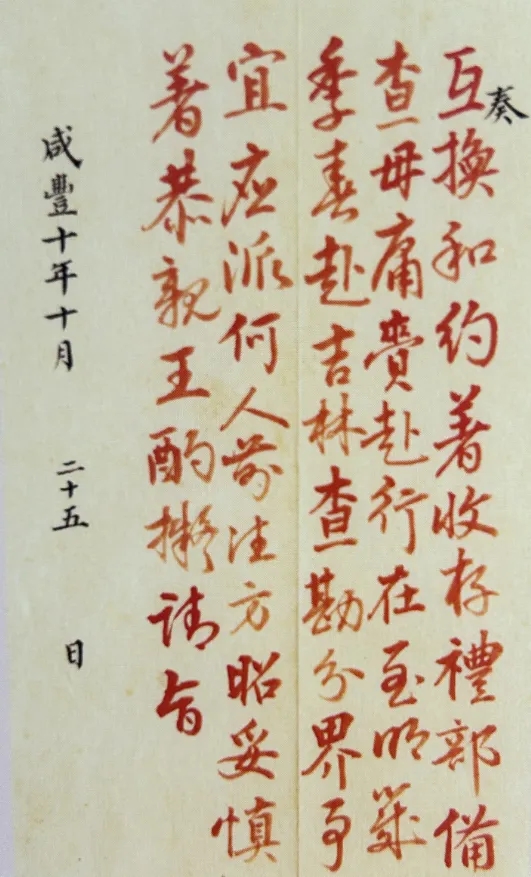 奏
互換和約著收存禮部備
查毋庸賫赴行在至明歲
季春赴吉林查勘分界事
宜應派何人前往方昭妥慎
著恭親王酌擬請旨
咸豐十年十月 二十五 日